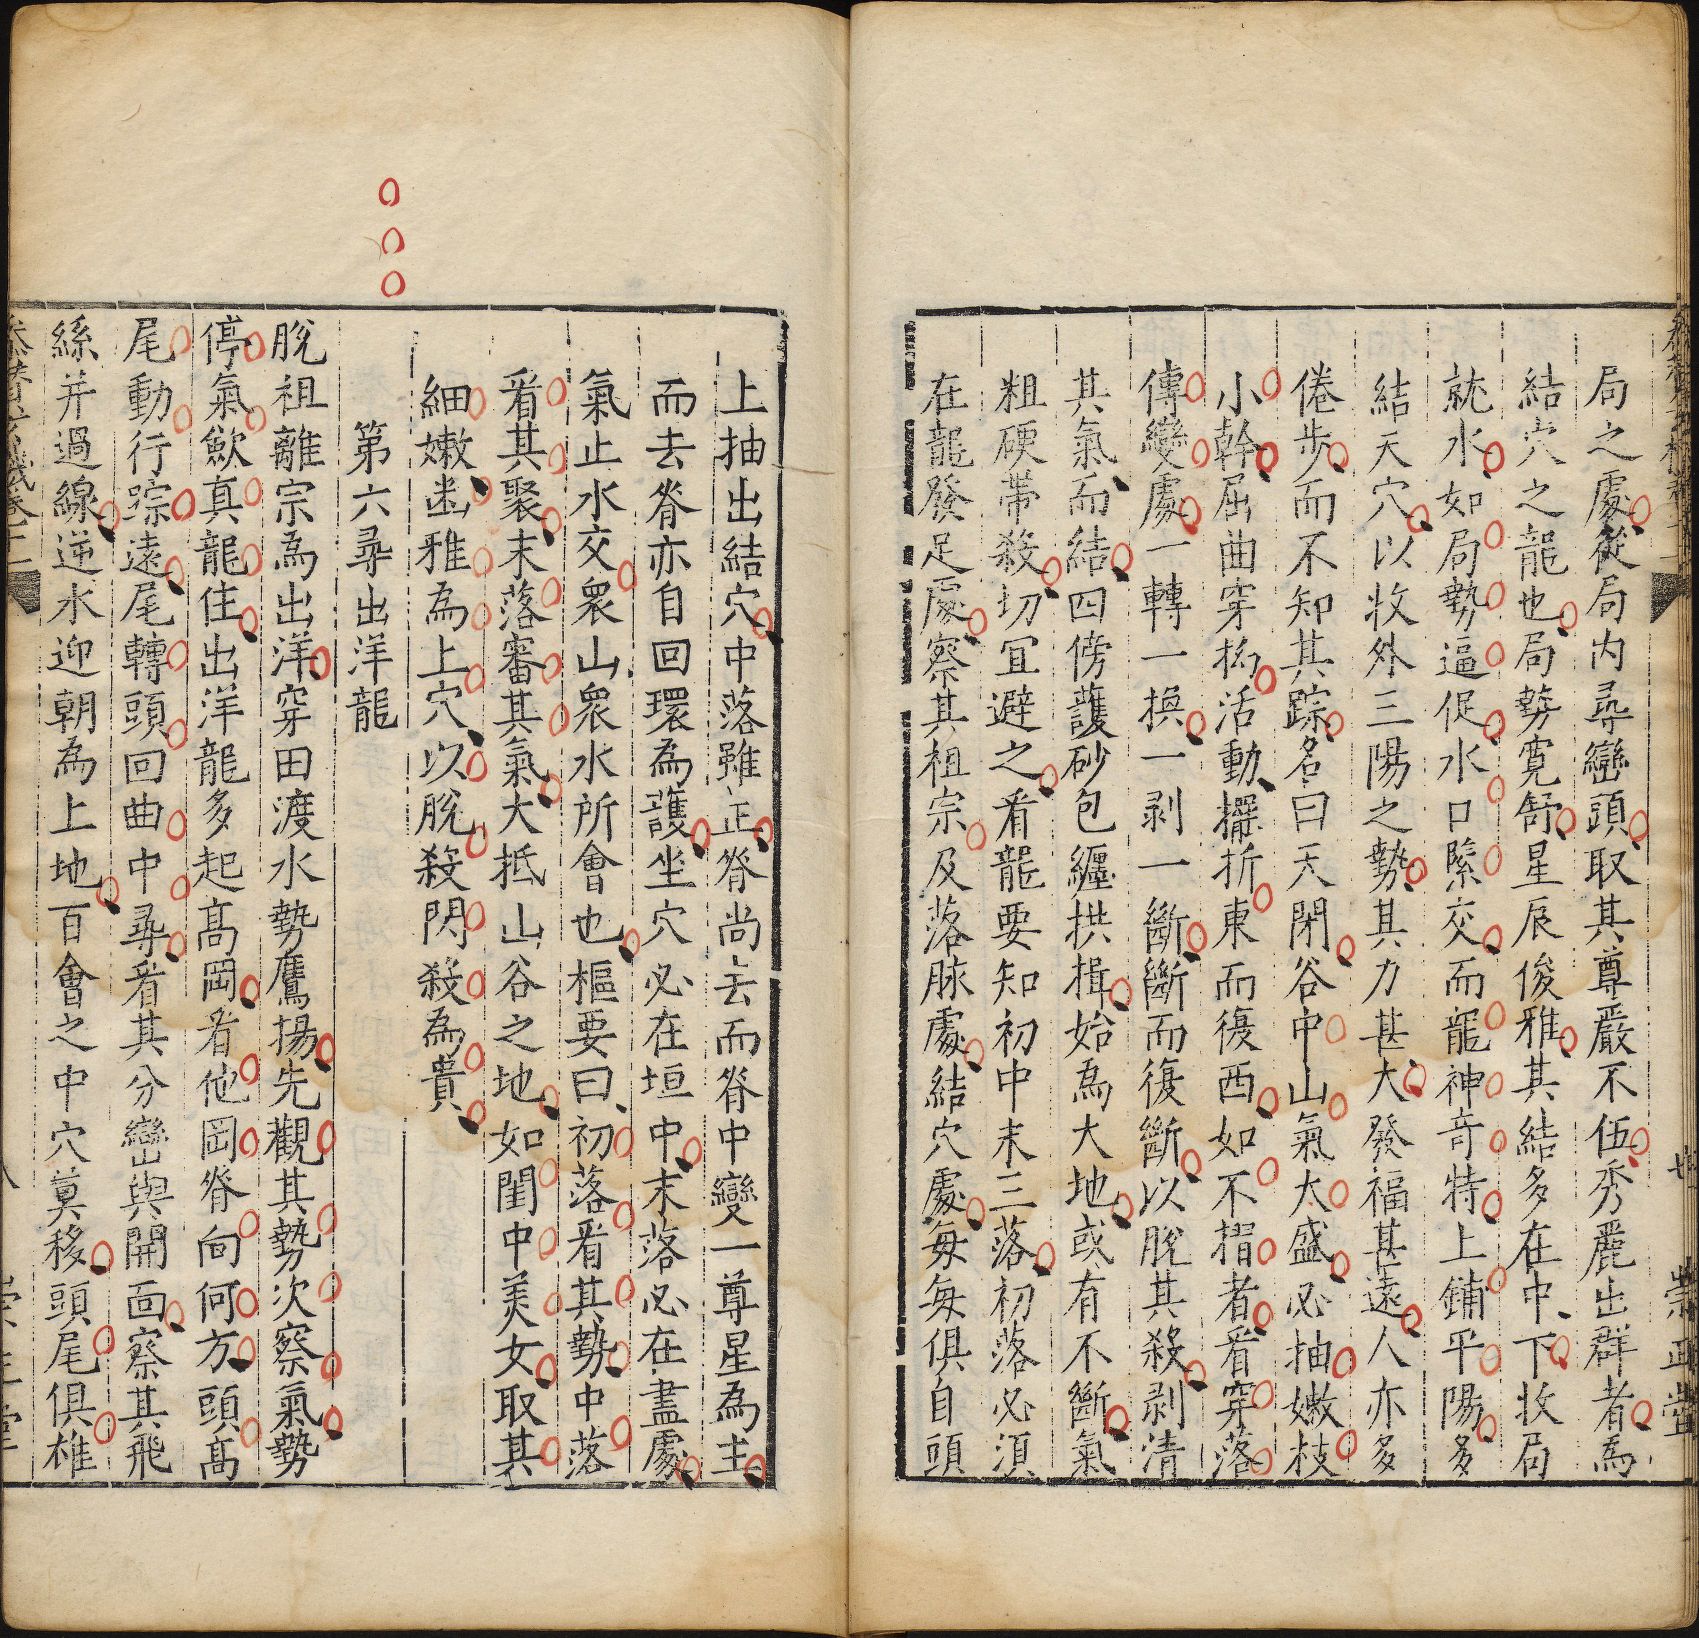 局之處從局內尋巒頭取其尊嚴不伍秀麗出群者為
結穴之龍也局勢寬舒星辰俊雅其結多在中下收局
就水如局勢逼促水口緊交而龍神竒特上鋪平陽多
結天穴以收外三陽之勢其力甚大發福甚遠人亦多
倦步而不知其踪名曰天閉谷中山氣太盛必抽嫩枝
小幹屈曲穿拗活動擺折東而復西如不搢者看穿落
傳變處一轉一換一剥一斷斷而復斷以脫其殺剥清
其氣而結四傍護砂包纏拱揖始為大地或有不斷氣
粗硬帶殺切宜避之看龍要知初中末三落初落必須
在龍發足處察其祖宗及落脉處結穴處每每俱自頭
上抽出結穴中落雖正脊尚去而脊中變一尊星為主
而去脊亦自回環為護坐穴必在垣中末落必在盡處
氣止水交衆山衆水所會也樞要曰初落看其勢中落
看其聚末落審其氣大抵山谷之地如閨中美女取其
細嫩幽雅為上穴以脫殺閃殺為貴
第六尋出洋龍
脫祖離宗為出洋穿田渡水勢鷹揚先觀其勢次察氣勢
停氣歛真龍住出洋龍多起高岡看他岡脊向何方頭高
尾動行踪遠尾轉頭回曲中尋看其分巒與開面察其飛
絲并過線逆水迎朝為上地百會之中穴莫移頭尾俱雄